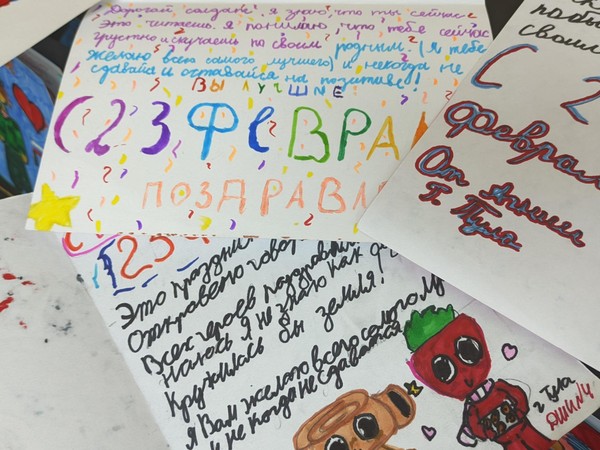 Дорогой солдат! я знаю, что ты сейчас
это читаешь. я понимаю, что тебе сейчас
грустно и скучаешь по своим родным. (я тебе
желаю всего самого лучшего) и некогда не
сдавайся и оставайся на позитиве!
ВЫ ЛУЧШИЕ!
С 23 ФЕВРА
ПОЗДРАВЛ
своим
С 2
феврал
От
г. Тула
123
Это праздник
Откравено говор
Всех героев поздравля
Жаюсь я не знаю как
Кружилась бы земля!
Я Вам желаю всего самого лу
и не когда не сдаватся
г. Тула